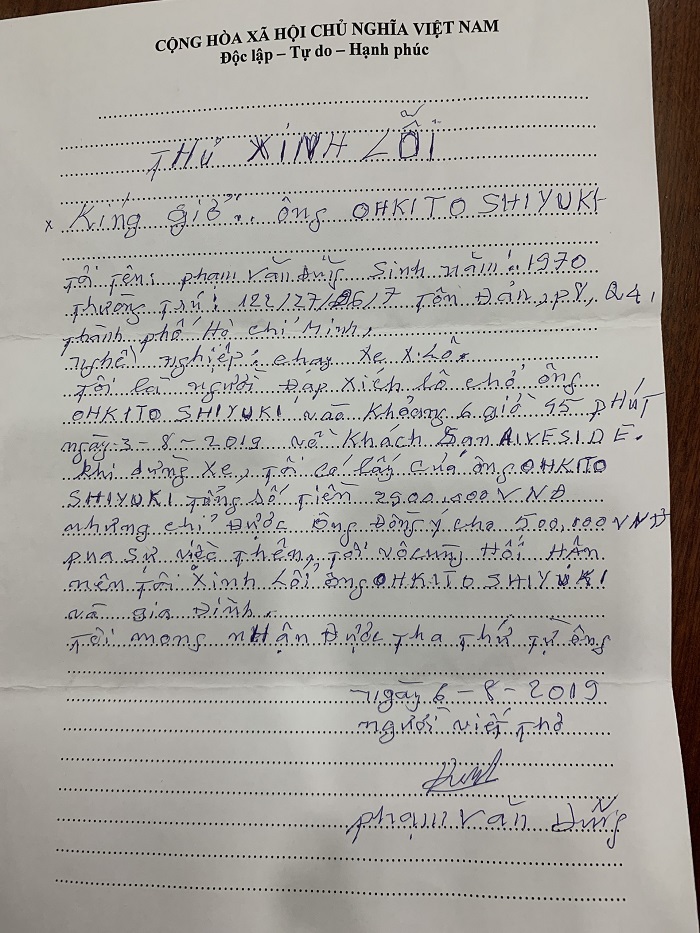 CỘNG HÒA XÃ HỘI CHỦ NGHĨA VIỆT NAM
Độc lập – Tự do – Hạnh phúc
THƯ XINH LỖI
x Kính giở.. ông OHKITO SHIYUKI
Tôi tên: phạm Văn Dũng Sinh năm: 1970
Thường trú: 122/27/26/7 Tôn Đản, p8, Q4,
Thành phố Hồ Chí Minh,
Nghề nghiệp: chạy xe x.Lô.
Tôi là người Đạp xích lô chở ông
OHKITO SHIYUKI vào khoảng 6 giờ 45 PHÚT
ngày 3-8-2019 về Khách Sạn RIVESIDE.
Khi dừng xe, tôi có lấy của ông OHKITO
SHIYUKI tổng số tiền 2900.000 VNĐ
nhưng chỉ Được ông Đồng ý cho 500,000 VNĐ
qua sự việc Thên, Tôi vô cùng Hối HẬN
nên tôi xinh Lỗi ông OHKITO SHIYUKI
và gia Đình.
Tôi mong nHận Được Tha Thứ Từ ông
ngày 6-8-2019
người viết Thơ
phạm Văn Dũng